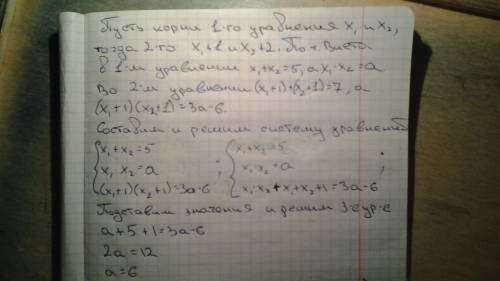 Пусть корни 1-го уравнения x₁ и x₂,
тогда 2-го x₁+1 и x₂+2. По т. Виета
в 1-м уравнении x₁+x₂=5, а x₁·x₂=a
Во 2-м уравнении (x₁+1)+(x₂+1)=7, а
(x₁+1)(x₂+1)=3a-6.
Составим и решим систему уравнений
{x₁+x₂=5 ; {x₁+x₂=5 ;
x₁·x₂=a x₁·x₂=a
(x₁+1)(x₂+1)=3a-6 x₁·x₂+x₁+x₂+1=3a-6
Подставим значения и решим 3-е ур-е
a+5+1=3a-6
2a=12
a=6